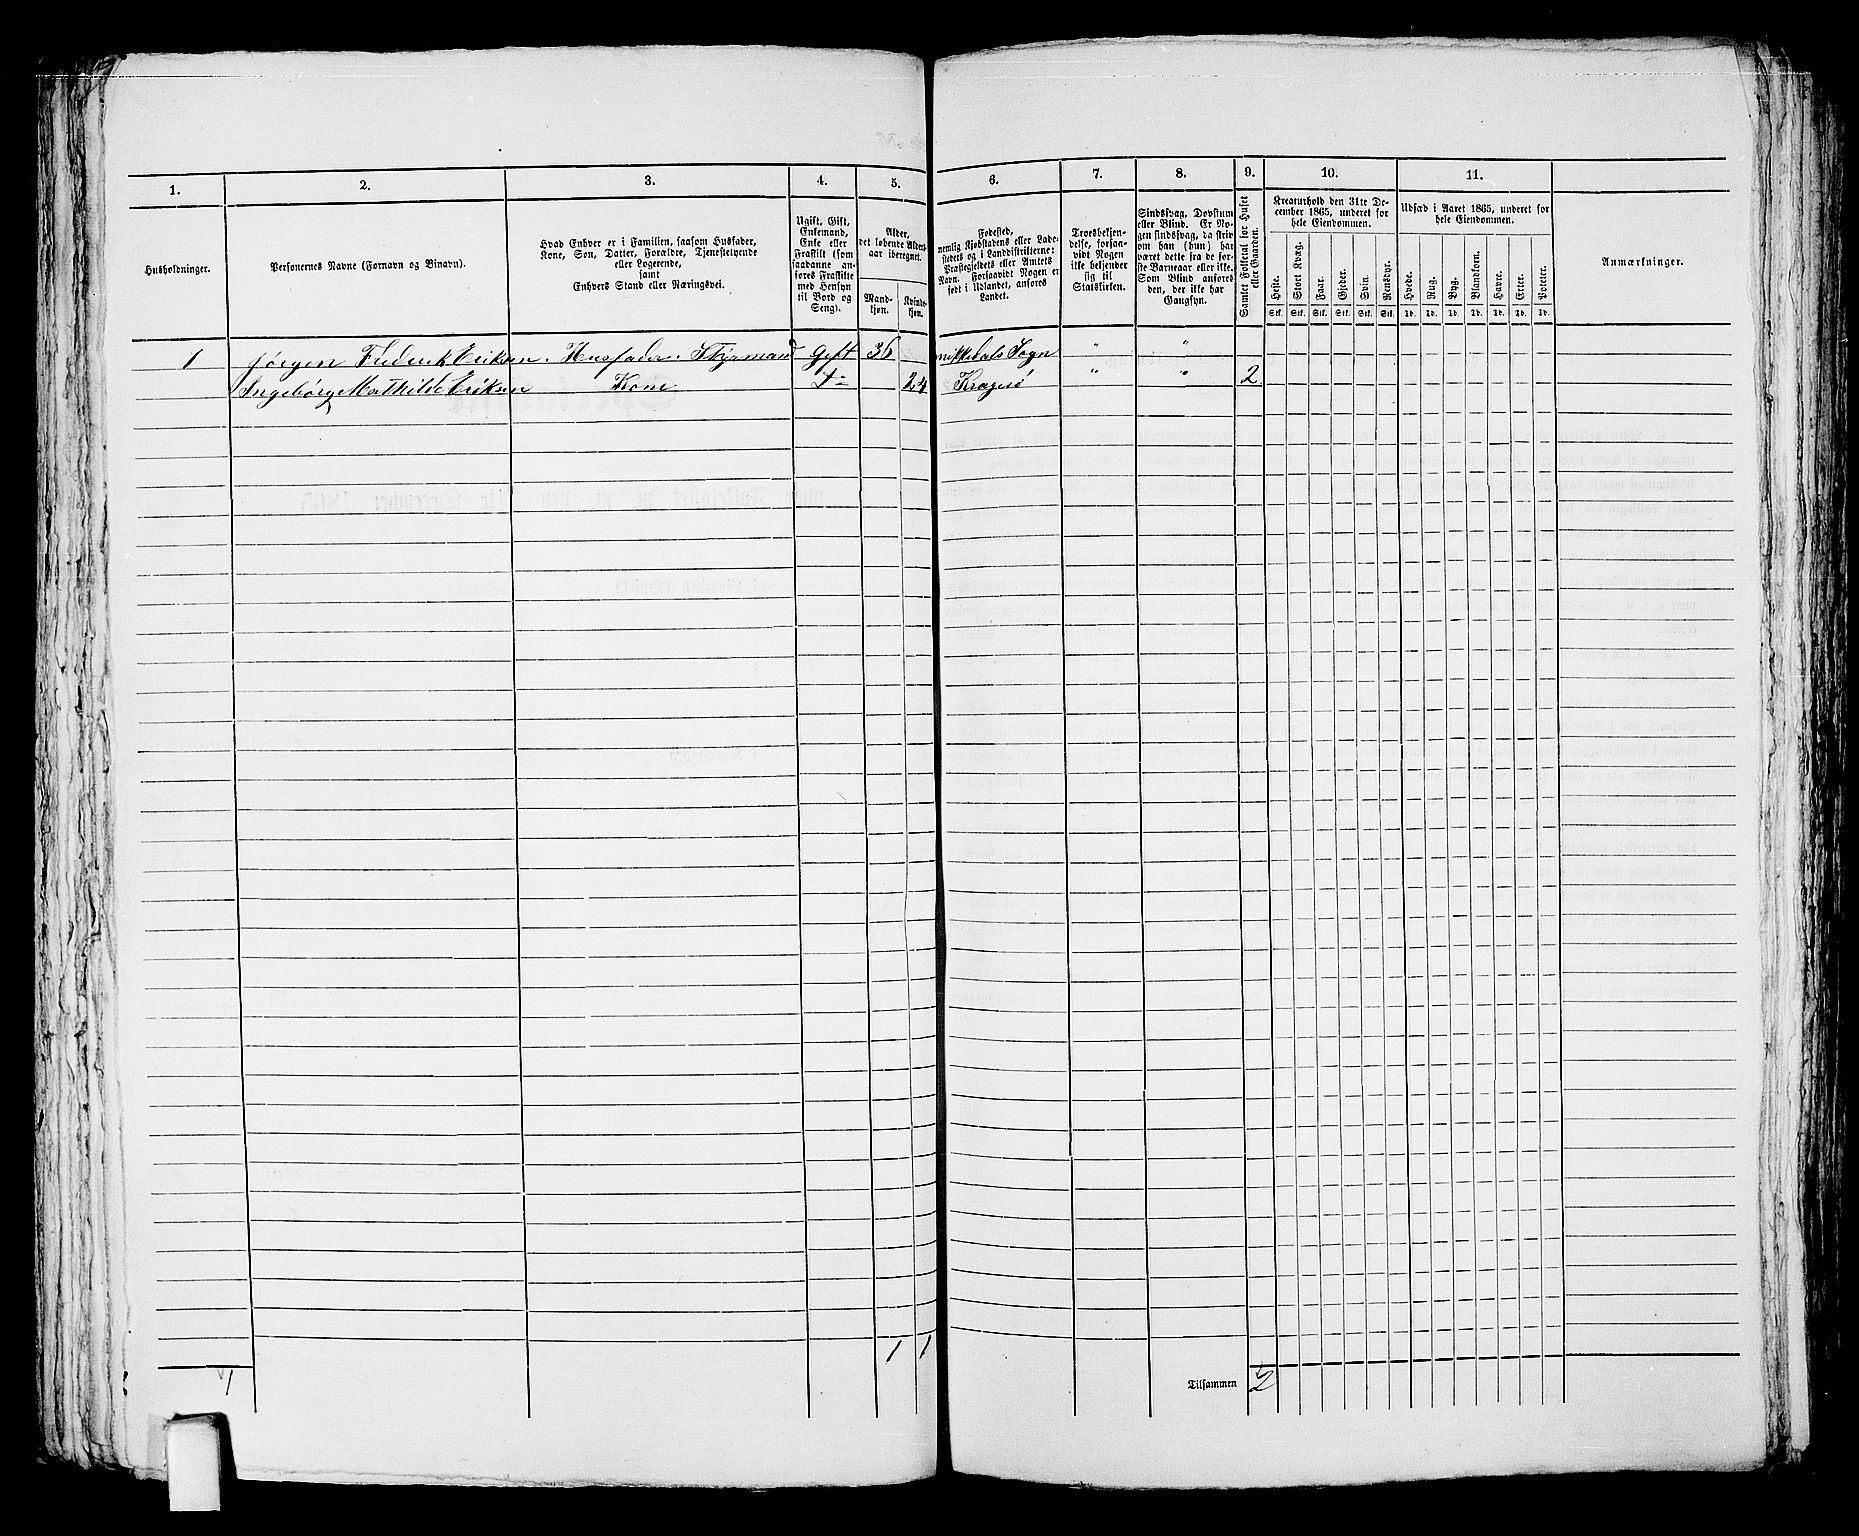 1. 2. 3. 4. 5. 6. 7. 8. 9. 10. 11.
Husholdninger.
Personernes Navne (Fornavn og Binavn).
Hvad Enhver er i Familien, saasom Husfader,
Kone, Søn, Datter, Forældre, Tjenestetyende
eller Logerende,
samt
Enhvers Stand eller Næringsvei.
Ugift, Gift,
Enkemand,
Enke eller
Fraskilt (som
saadanne an-
føres Fraskilte
med Hensyn
til Bord og
Seng).
Alder,
det løbende Alders-
aar iberegnet.
Mand-
kjøn.
Kvinde-
kjøn.
Fødested,
nemlig Kjøbstadens eller Lade-
stedets og i Landdistrikterne:
Præstegjeldets eller Amtets
Navn. Forsaavidt Nogen er
født i Udlandet, anføres
Landet.
Troesbekjen-
delse, forsaa-
vidt Nogen
ikke bekjender
sig til
Statskirken.
Sindssvag, Døvstum
eller Blind. Er No-
gen sindssvag, da skriv
om han (hun) har
været dette fra de før-
ste Barneaar eller ikke.
Som Blind anføres
den, der ikke har
Gangsyn.
Samlet Folketal for Huset
eller Gaarden.
Kreaturhold den 31te De-
cember 1865, underet for
hele Eiendommen.
Heste. Stort Kvæg. Faar. Gjeder. Svin. Rensdyr.
Stk. Stk. Stk. Stk. Stk. Stk.
Udsæd i Aaret 1865, underet for
hele Eiendommen.
Hvede. Rug. Byg. Blandkorn. Havre. Erter. Poteter.
Td. Td. Td. Td. Td. Td. Td.
Anmærkninger.
1 Jørgen Frederik Eriksen. Husfader. Styrmand Gift 36 Sogn " "
Ingebørg Mathilde Eriksen Kone D= 24 Kragerø " " 2
1 1 1 Tilsammen 2